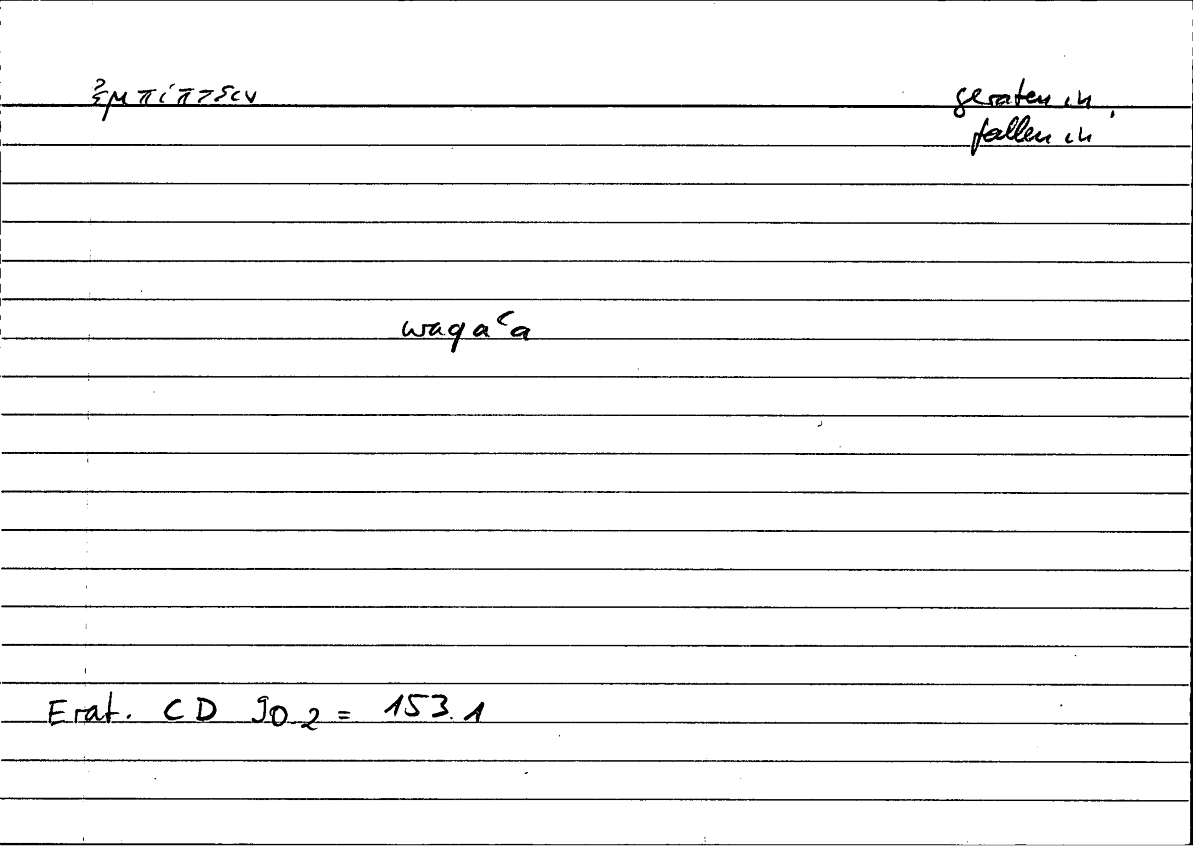 ἐμπίπτειν
geraten in,
fallen in
waqaʿa
Erat. CD 90.2 = 153.1